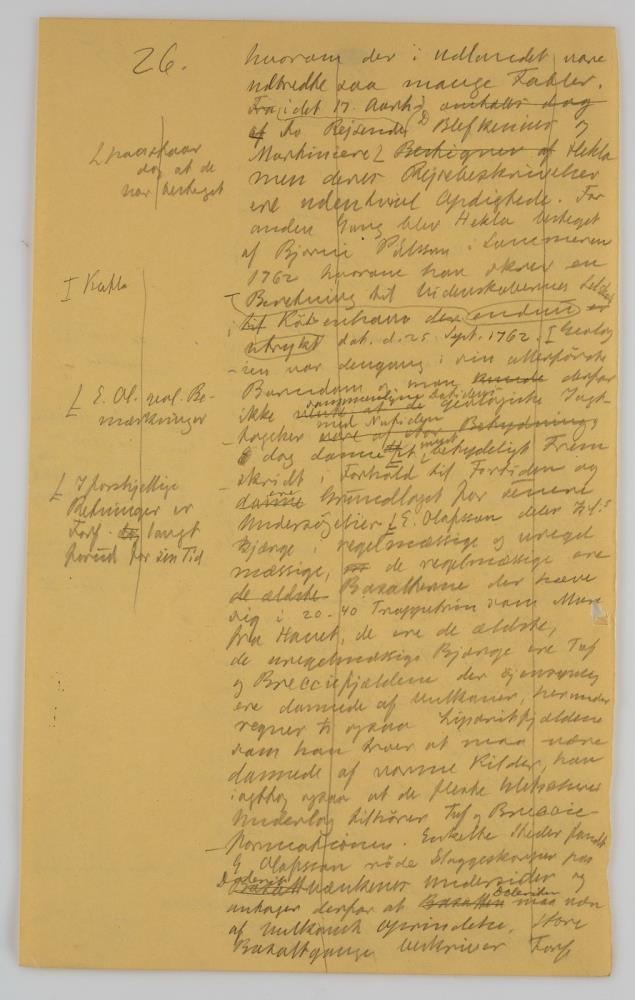 26.
hvorom der i Udlandet vare
udbredte saa mange Fabler.
Fra i det 17. Aarh.
af to Rejsende D Blefkenius og
Martiniere [ Bestigner af Hekla
men deres Rejsebeskrivelser
ere uden tvivl Opdigtede. For
anden Gang blev Hekla besteget
af Bjarni Pálsson i Sommeren
1762 hvorom han skrev en
I Beretning til Videnskabernes Selsk
i Köbenhavn der endnu er
utrykt dat. d. 25. Sept. 1762. I Geolog
-ien var dengang i sin allerförste
Barndom og man kunde derfor
ikke
sammenligne Datidens geologiske Iagt-
med Nutidens
-tagelser vare af stor Betydning
dog danne et meget betydeligt Frem
skridt i Forhold til Fortiden og
danne Grundlaget for senere
Undersögelser [ E. Olafsson deler Isl.s
Bjærge i regelmæssige og uregel
mæssige, de regelmæssige ere
de ældste Basalterne der hæve
sig i 20-40 Trappetrin
fra Havet, de ere de ældste,
de uregelmæssige Bjærge ere Tuf
og Brecciefjældene der öjensynlig
ere dannede af Vulkaner, herunder
regner han ogsaa Liparitfjældene
som han troer at maa være
dannede af varme Kilder, han
iagttog ogsaa at de fleste
Underlag tilhörer Tuf og Breccie-
formationen. Enkelte Steder fandt
E Olafsson röde Slaggeskorper paa
Dolerit
bænkenes Undersider og
antager derfor at Basalten Doleriten maa være
af vulkansk Oprindelse, store
Basaltgange beskriver Forf
[ paastaar
dog at de
har besteget
I Katla
[ E. Ól. Be-
mærkninger
[ I forskjellige
Retninger er
Forf. langt
forud for sin Tid